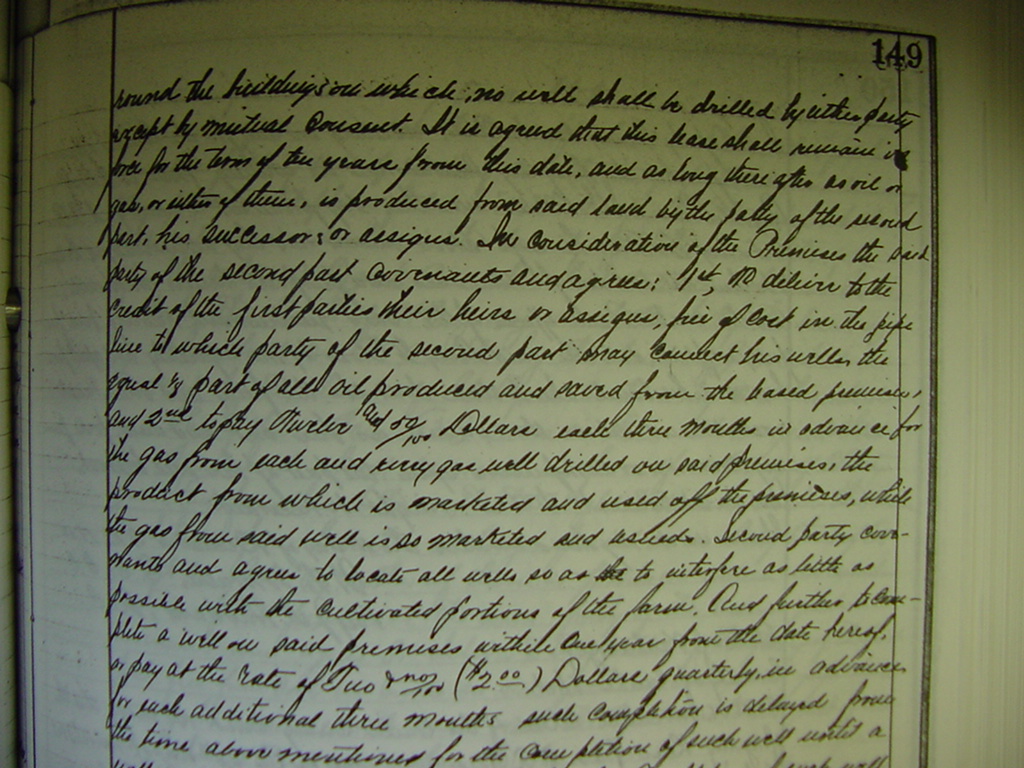 149
round the buildings on which, no well shall be drilled by either party
except by mutual consent. It is agreed that this lease shall remain in
force for the term of ten years from this date, and as long thereafter as oil or
gas, or either of them, is produced from said land by the party of the second
part, his successors or assigns. In consideration of the Premises the said
party of the second part covenants and agrees: 1st, To deliver to the
credit of the first parties their heirs or assigns, free of cost in the pipe
line to which party of the second part may connect his wells, the
equal 1/8 part of all oil produced and saved from the leased premises,
and 2nd to pay Twelve and 50/100 Dollars each three months in advance for
the gas from each and every gas well drilled on said premises, the
product from which is marketed and used off the premises, while
the gas from said well is so marketed and used. Second party cove-
nants and agrees to locate all wells so as to interfere as little as
possible with the cultivated portions of the farm. And further to com-
plete a well on said premises within one year from the date hereof,
or pay at the rate of Two & no/100 ($2.00) Dollars quarterly, in advance
for each additional three months such completion is delayed from
the time above mentioned for the completion of such well until a